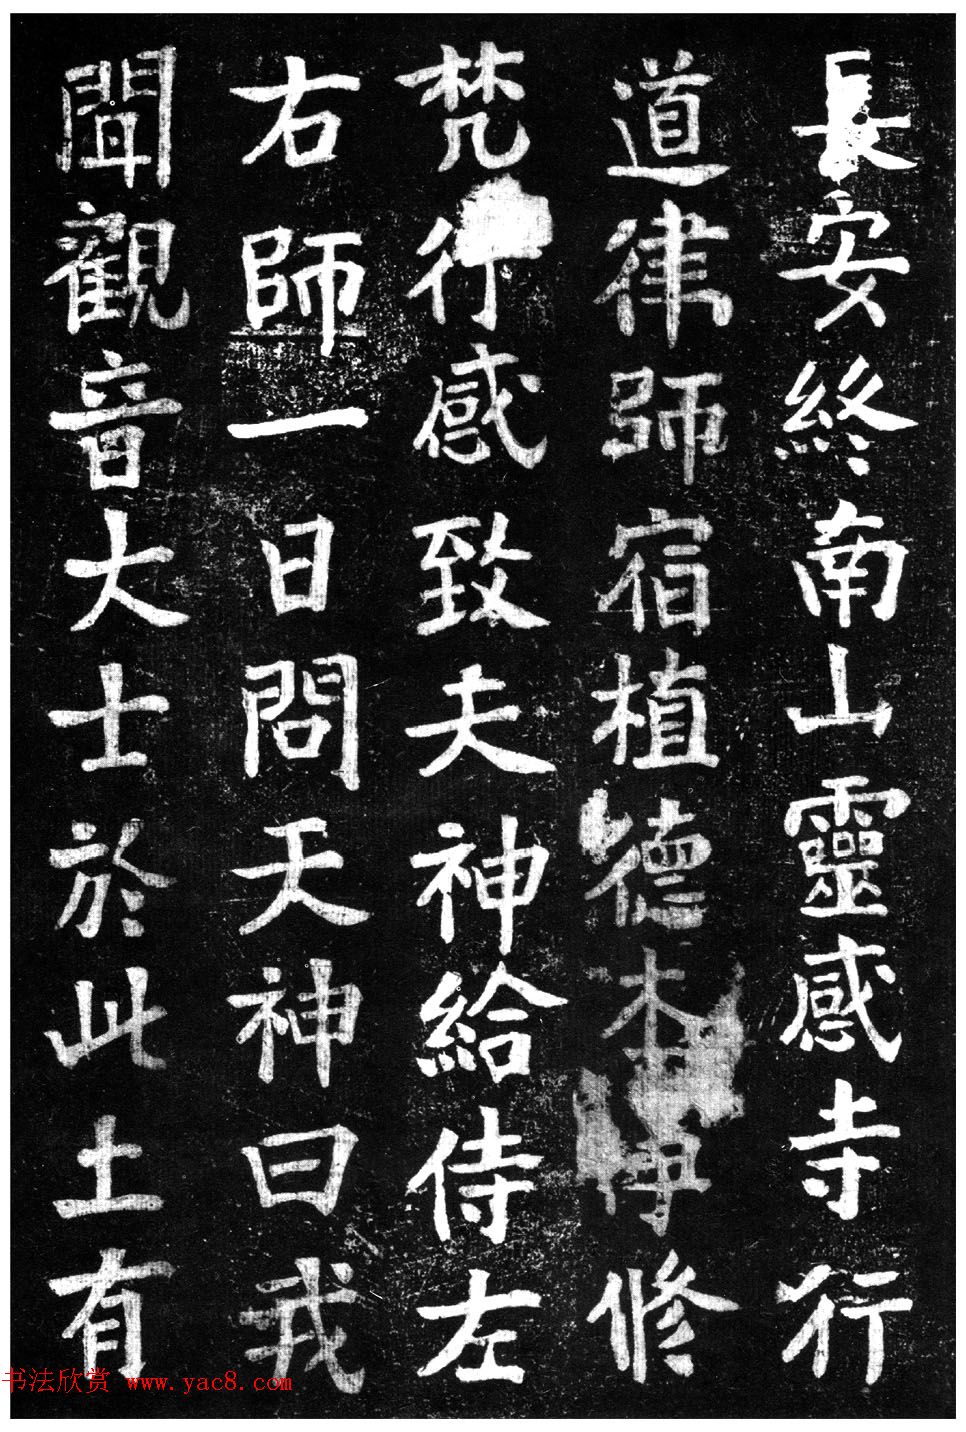 長安終南山靈感寺行
道律師宿植德本淨修
梵行感致夫神給侍左
右師一日問天神曰我
聞觀音大士於此土有
书法欣赏 www.yac8.com